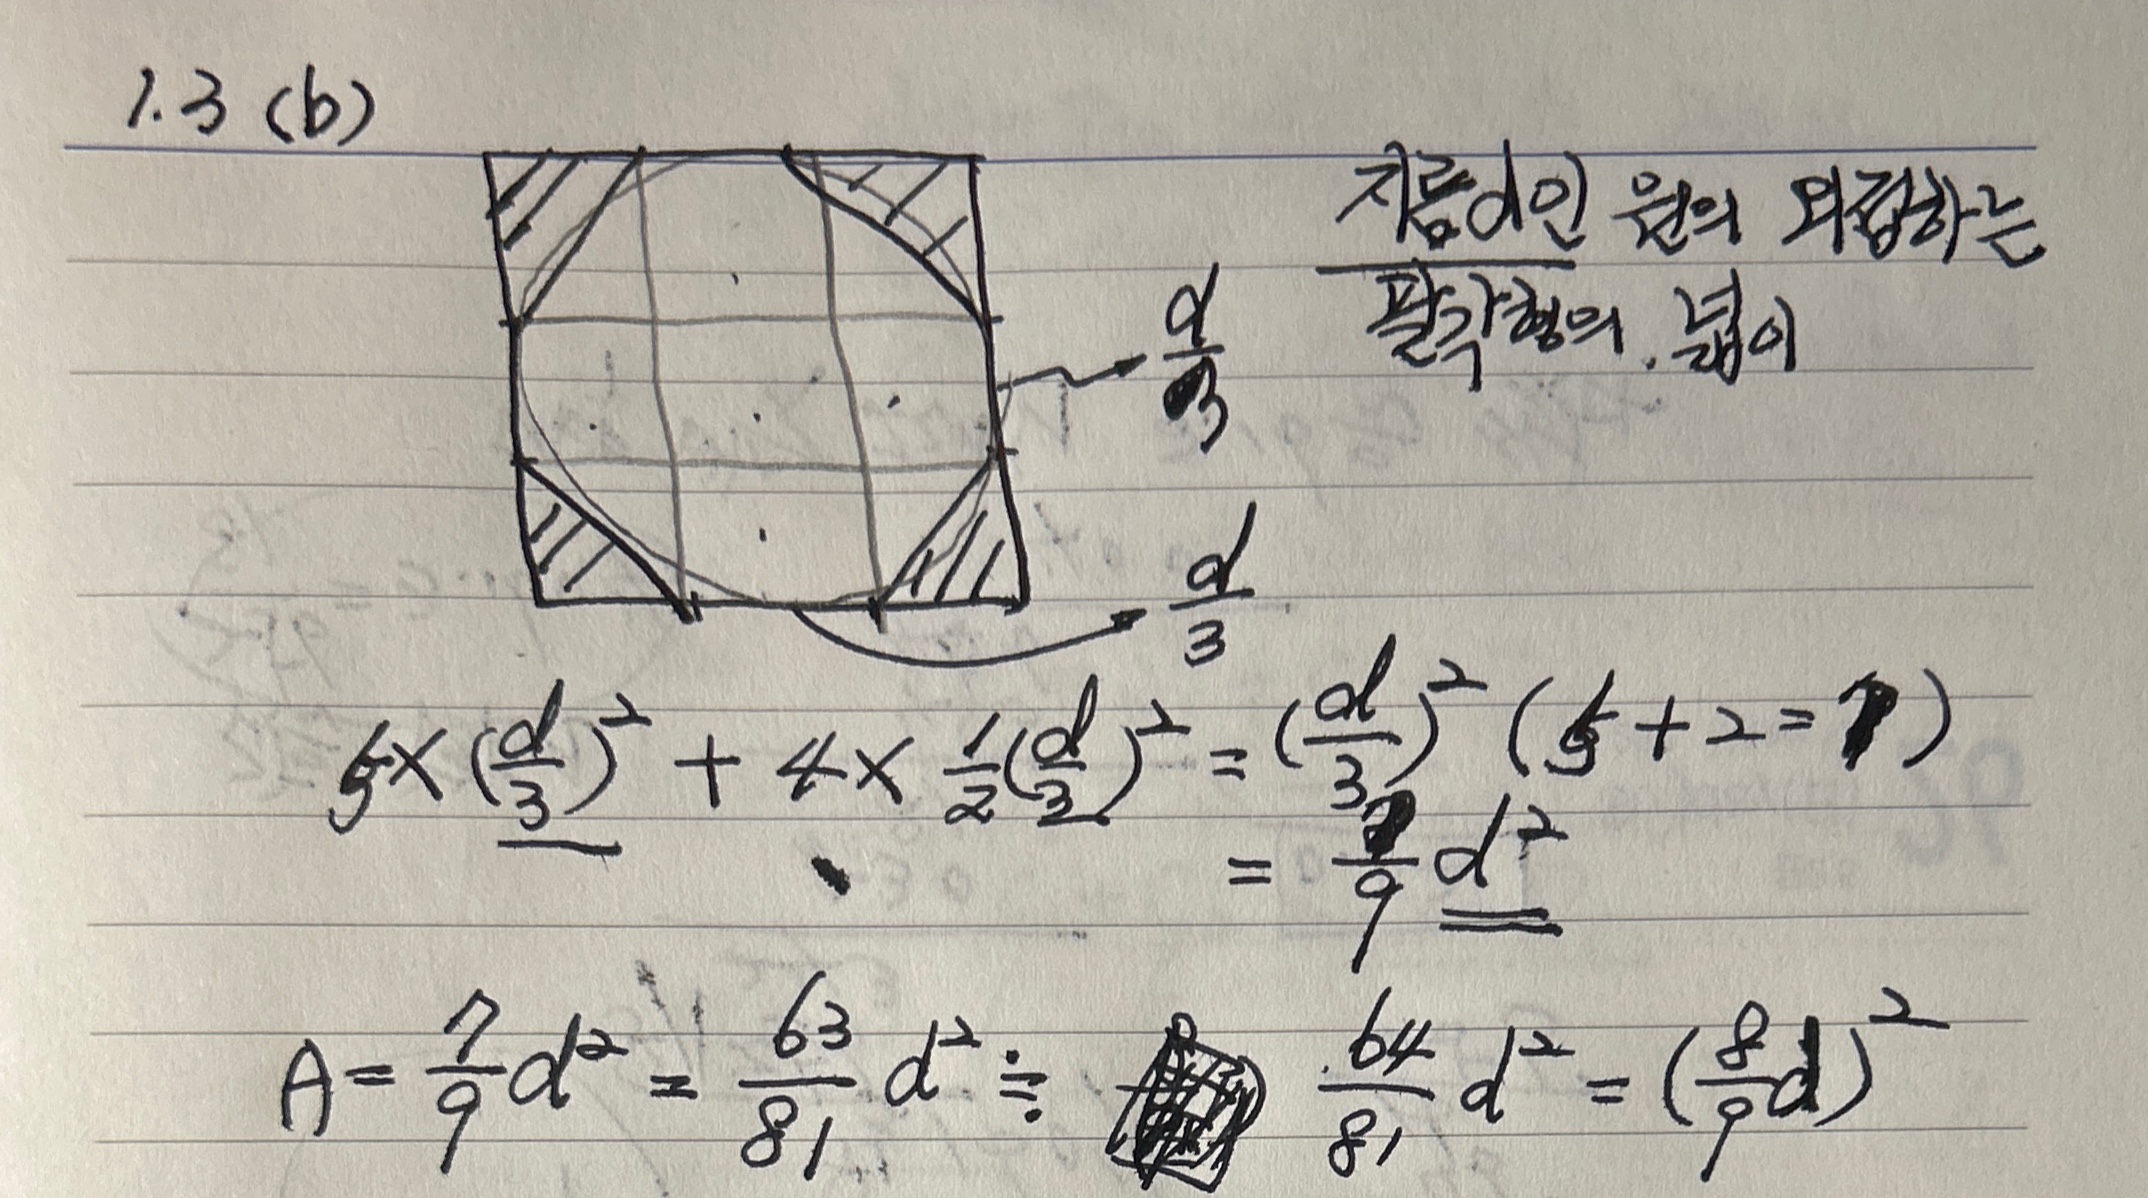 1.3 (b)
지름 d인 원의 외접하는
팔각형의 넓이
d/3
d/3
5×(d/3)² + 4×1/2(d/3)² = (d/3)² (5+2=7)
= 7/9 d²
A = 7/9 d² = 63/81 d² ≒ 64/81 d² = (8/9 d)²